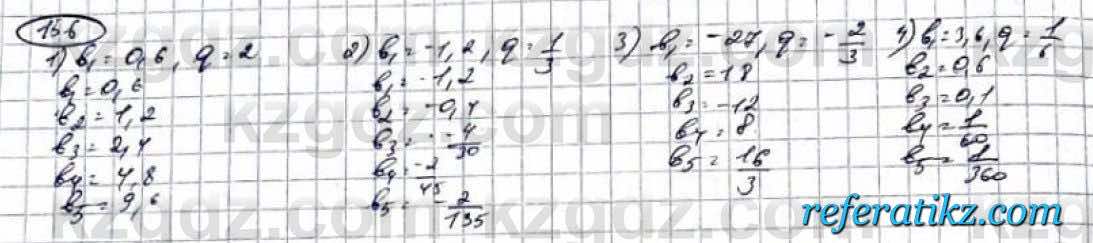 156
1) b₁ = 0,6, q = 2
b₁ = 0,6
b₂ = 1,2
b₃ = 2,4
b₄ = 4,8
b₅ = 9,6
2) b₁ = -1,2, q = 1/3
b₁ = -1,2
b₂ = -0,4
b₃ = -4/30
b₄ = -2/45
b₅ = -2/135
3) b₁ = -27, q = -2/3
b₂ = 18
b₃ = -12
b₄ = 8
b₅ = 16/3
4) b₁ = 3,6, q = 1/6
b₂ = 0,6
b₃ = 0,1
b₄ = 1/60
b₅ = 1/360
referatikz.com.ru